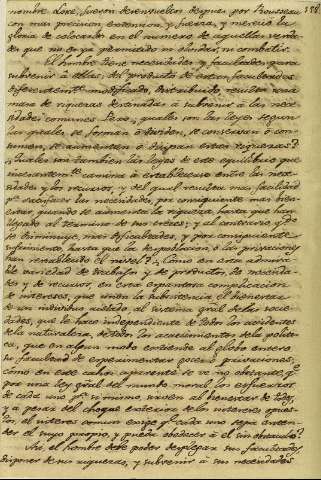 nombre Loke, fueron desenvueltos despues por Rousseau
con mas precision extension y fuerza, y mereció la
gloria de colocarlos en el numero de aquellas verda-
des que no es ya permitido ni olvidar, ni combatir.
El hombre tiene necesidades y facultades para
subvenir á ellas; del producto de estas facultades
diferentemte. modificado, distribuido, resulta una
masa de riquezas destinadas á subvenir á las nece-
sidades comunes. Pero, ¿quales son las leyes segun
las quales se forman ó dividen, se conservan ó con-
sumen, se aumentan ó disipan estas riquezas?
¿Quales son tambien las leyes de este equilibrio que
incesantemte. camina á establecerse entre las nece-
sidades y los recursos, y del qual resulta mas facilidad
pa. satisfacer las necesidades, por consiguiente mas bien-
estar, quando se aumenta la riqueza hasta que haya
llegado al termino de su creces; y al contrario,
mas dificultades, y por consiguiente
sufrimiento, hasta que la despoblacion, ó las privaciones
han restablecido el nivel? ¿Como en esta admira-
ble variedad de trabajos y de productos, de necesida-
des y de recursos, en esta espantosa complicacion
de intereses, que unen la subsistencia, el bienestar
de un individuo aislado, al sistema gral. de las socie-
dades, que le hace independiente de todos los accidentes
de la naturaleza, de todos los acaecimientos de la politi-
ca, que en algun modo extiende al globo entero
su facultad de experimentar goces ó privaciones;
cómo en este cahos aparente se ve no obstante, qe.
por una ley gral. del mundo moral los esfuerzos
de cada uno pr. si mismo, sirven al bienestar de todos,
y a pesar del choque exterior de los intereses opues-
tos, el interes comun exige qe. cada uno sepa enten-
der el suyo propio, y pueda obedecer á él sin obstaculo?
Asi, el hombre debe poder desplegar sus facultades,
disponer de sus riquezas, y subvenir á sus necesidades